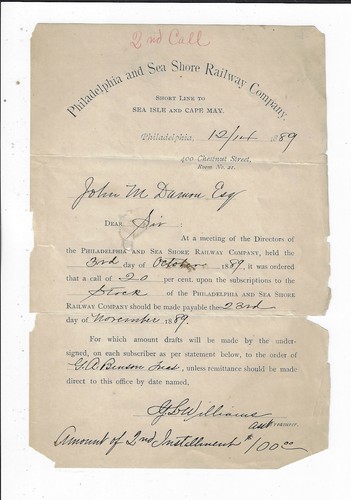 2nd Call
Philadelphia and Sea Shore Railway Company,
SHORT LINE TO
SEA ISLE AND CAPE MAY.
Philadelphia, 12/14 1889
400 Chestnut Street,
ROOM No. 21.
John M Damon Esq
DEAR Sir
At a meeting of the Directors of
the PHILADELPHIA AND SEA SHORE RAILWAY COMPANY, held the
3rd day of October 1889, it was ordered
that a call of 20 per cent. upon the subscriptions to the
Stock of the PHILADELPHIA AND SEA SHORE
RAILWAY COMPANY should be made payable the 23rd
day of November 1889.
For which amount drafts will be made by the under-
signed, on each subscriber as per statement below, to the order
of G. A. Benson Treas, unless remittance should be made
direct to this office by date named.
Williams
asst Treasurer.
Amount of 2nd Installment $100.00